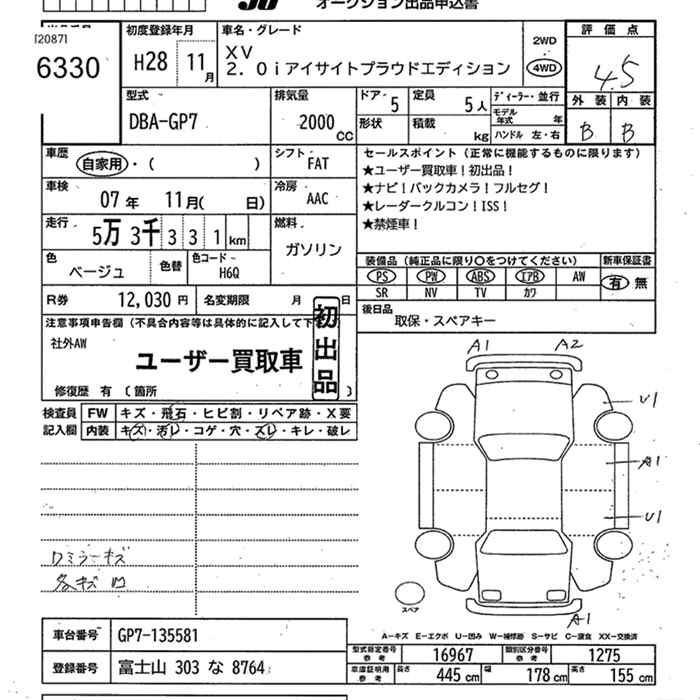 オークション出品申込書
[20871
6330
初度登録年月
H28 11月
車名・グレード
XV
2.0iアイサイトプラウドエディション
2WD
4WD
評価点
4.5
外装 内装
B B
型式
DBA-GP7
排気量
2000 CC
ドア 5
定員 5人
ディーラー・並行
モデル年式 年
形状
積載 kg
ハンドル 左・右
車歴
自家用・( )
シフト
FAT
車検
07年 11月( 日)
冷房
AAC
走行
5万3千331km
燃料
ガソリン
色
ベージュ
色替
色コード
H6Q
R券 12,030円
名変期限 月 日
セールスポイント (正常に機能するものに限ります)
★ユーザー買取車!初出品!
★ナビ!バックカメラ!フルセグ!
★レーダークルコン!ISS!
★禁煙車!
装備品 (純正品に限り○をつけてください)
新車保証書
PS PW ABS エアB AW
有 無
SR NV TV カワ
後日品
取保・スペアキー
注意事項申告欄 (不具合内容等は具体的に記入して下
社外AW
ユーザー買取車
初出品
修復歴 有 〔箇所 〕
検査員記入欄
FW キズ・飛石・ヒビ割・リペア跡・X要
内装 キズ・汚レ・コゲ・穴・スレ・キレ・破レ
A1 A2
U1
A1
U1
A1
スペア
ワミラーキズ
各キズ凹
A—キズ E—エクボ U—凹み W—補修跡 S—サビ C—腐食 XX—交換済
車台番号 GP7-135581
登録番号 富士山 303 な 8764
型式指定番号 参考 16967
類別区分番号 参考 1275
車庫証明用 参考
長さ 445 cm 幅 178 cm 高さ 155 cm